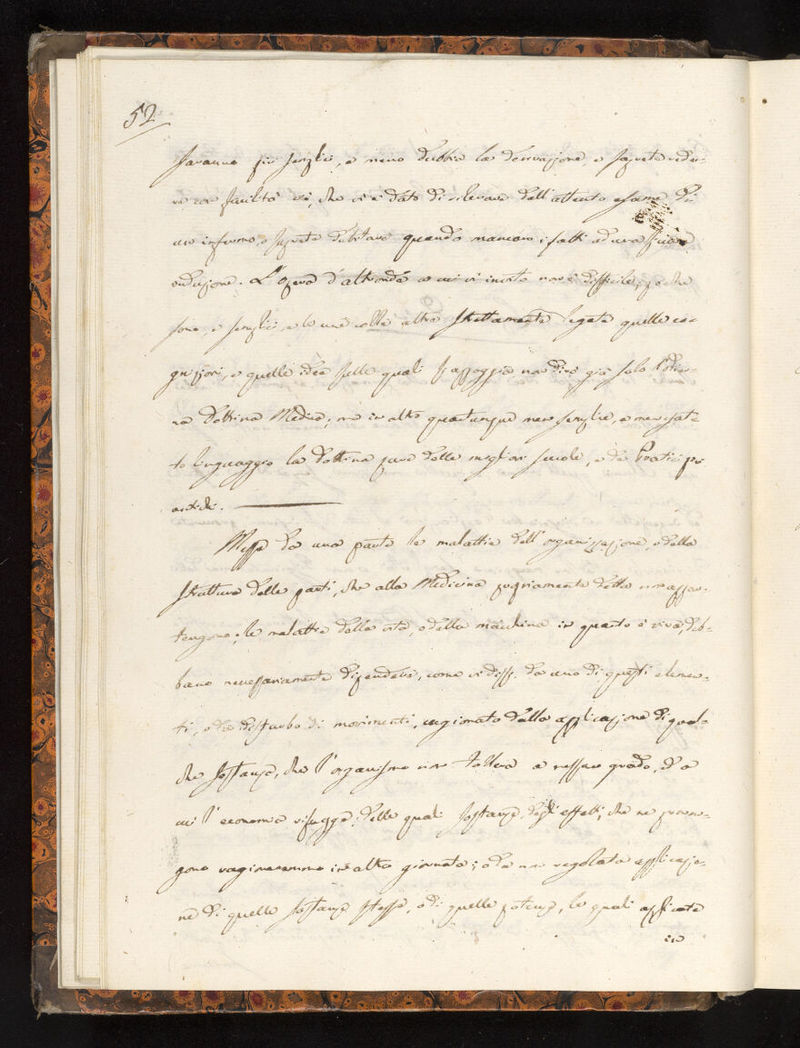 52
saranno più semplici, e meno dubbia la deduzione, e saprete vede-
re con facilità ciò, che vi è dato di rilevare dall'attento esame di
un infermo, e saprete dubitare quando mancano i fatti ad una sicura
induzione. L'opera d'altronde a cui vi invito non è difficile, poiche
sono, e semplici, e le une colle altre strettamente legate quelle co-
gnizioni, e quelle idee sulle quali s'appoggia non dirò già solo l'odier-
na dottrina Medica; ma in altro quantunque men semplice, e men esat-
to linguaggio la dottrina pure delle migliori scuole, e dei Pratici più
antichi.
Messe da una parte le malattie dell'organizzazione, o della
struttura delle parti, che alla Medicina propriamente detta non appar-
tengono; le malattie della vita, o della macchina in quanto è viva, deb-
bano necessariamente dipendere, come vi dissi da uno di questi elemen-
ti, o da disturbo di movimenti, cagionato dalla applicazione di qual-
che sostanza, che l'organismo non tollera a nessun grado, e da
cui l'economia rifugge; delle quali sostanze, degli effetti, che ne proven-
gono ragioneremmo in altra giornata; o da non regolata applicazio-
ne di quelle sostanze stesse, o di quelle potenze, le quali applicate
in